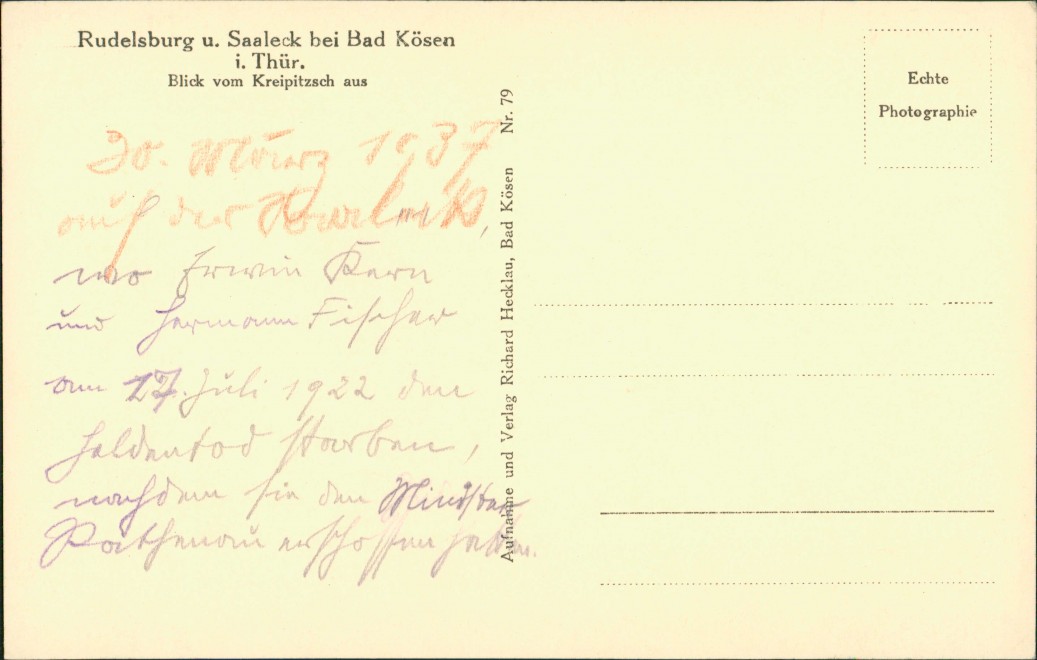 Rudelsburg u. Saaleck bei Bad Kösen
i. Thür.
Blick vom Kreipitzsch aus
30. März 1937
auf der
wo Erwin Kern
und Hermann Fischer
am 17. Juli 1922 den
Heldentod starben,
nachdem sie den Minister
Rathenau erschossen hatten.
Aufnahme und Verlag Richard Hecklau, Bad Kösen Nr. 79
Echte
Photographie